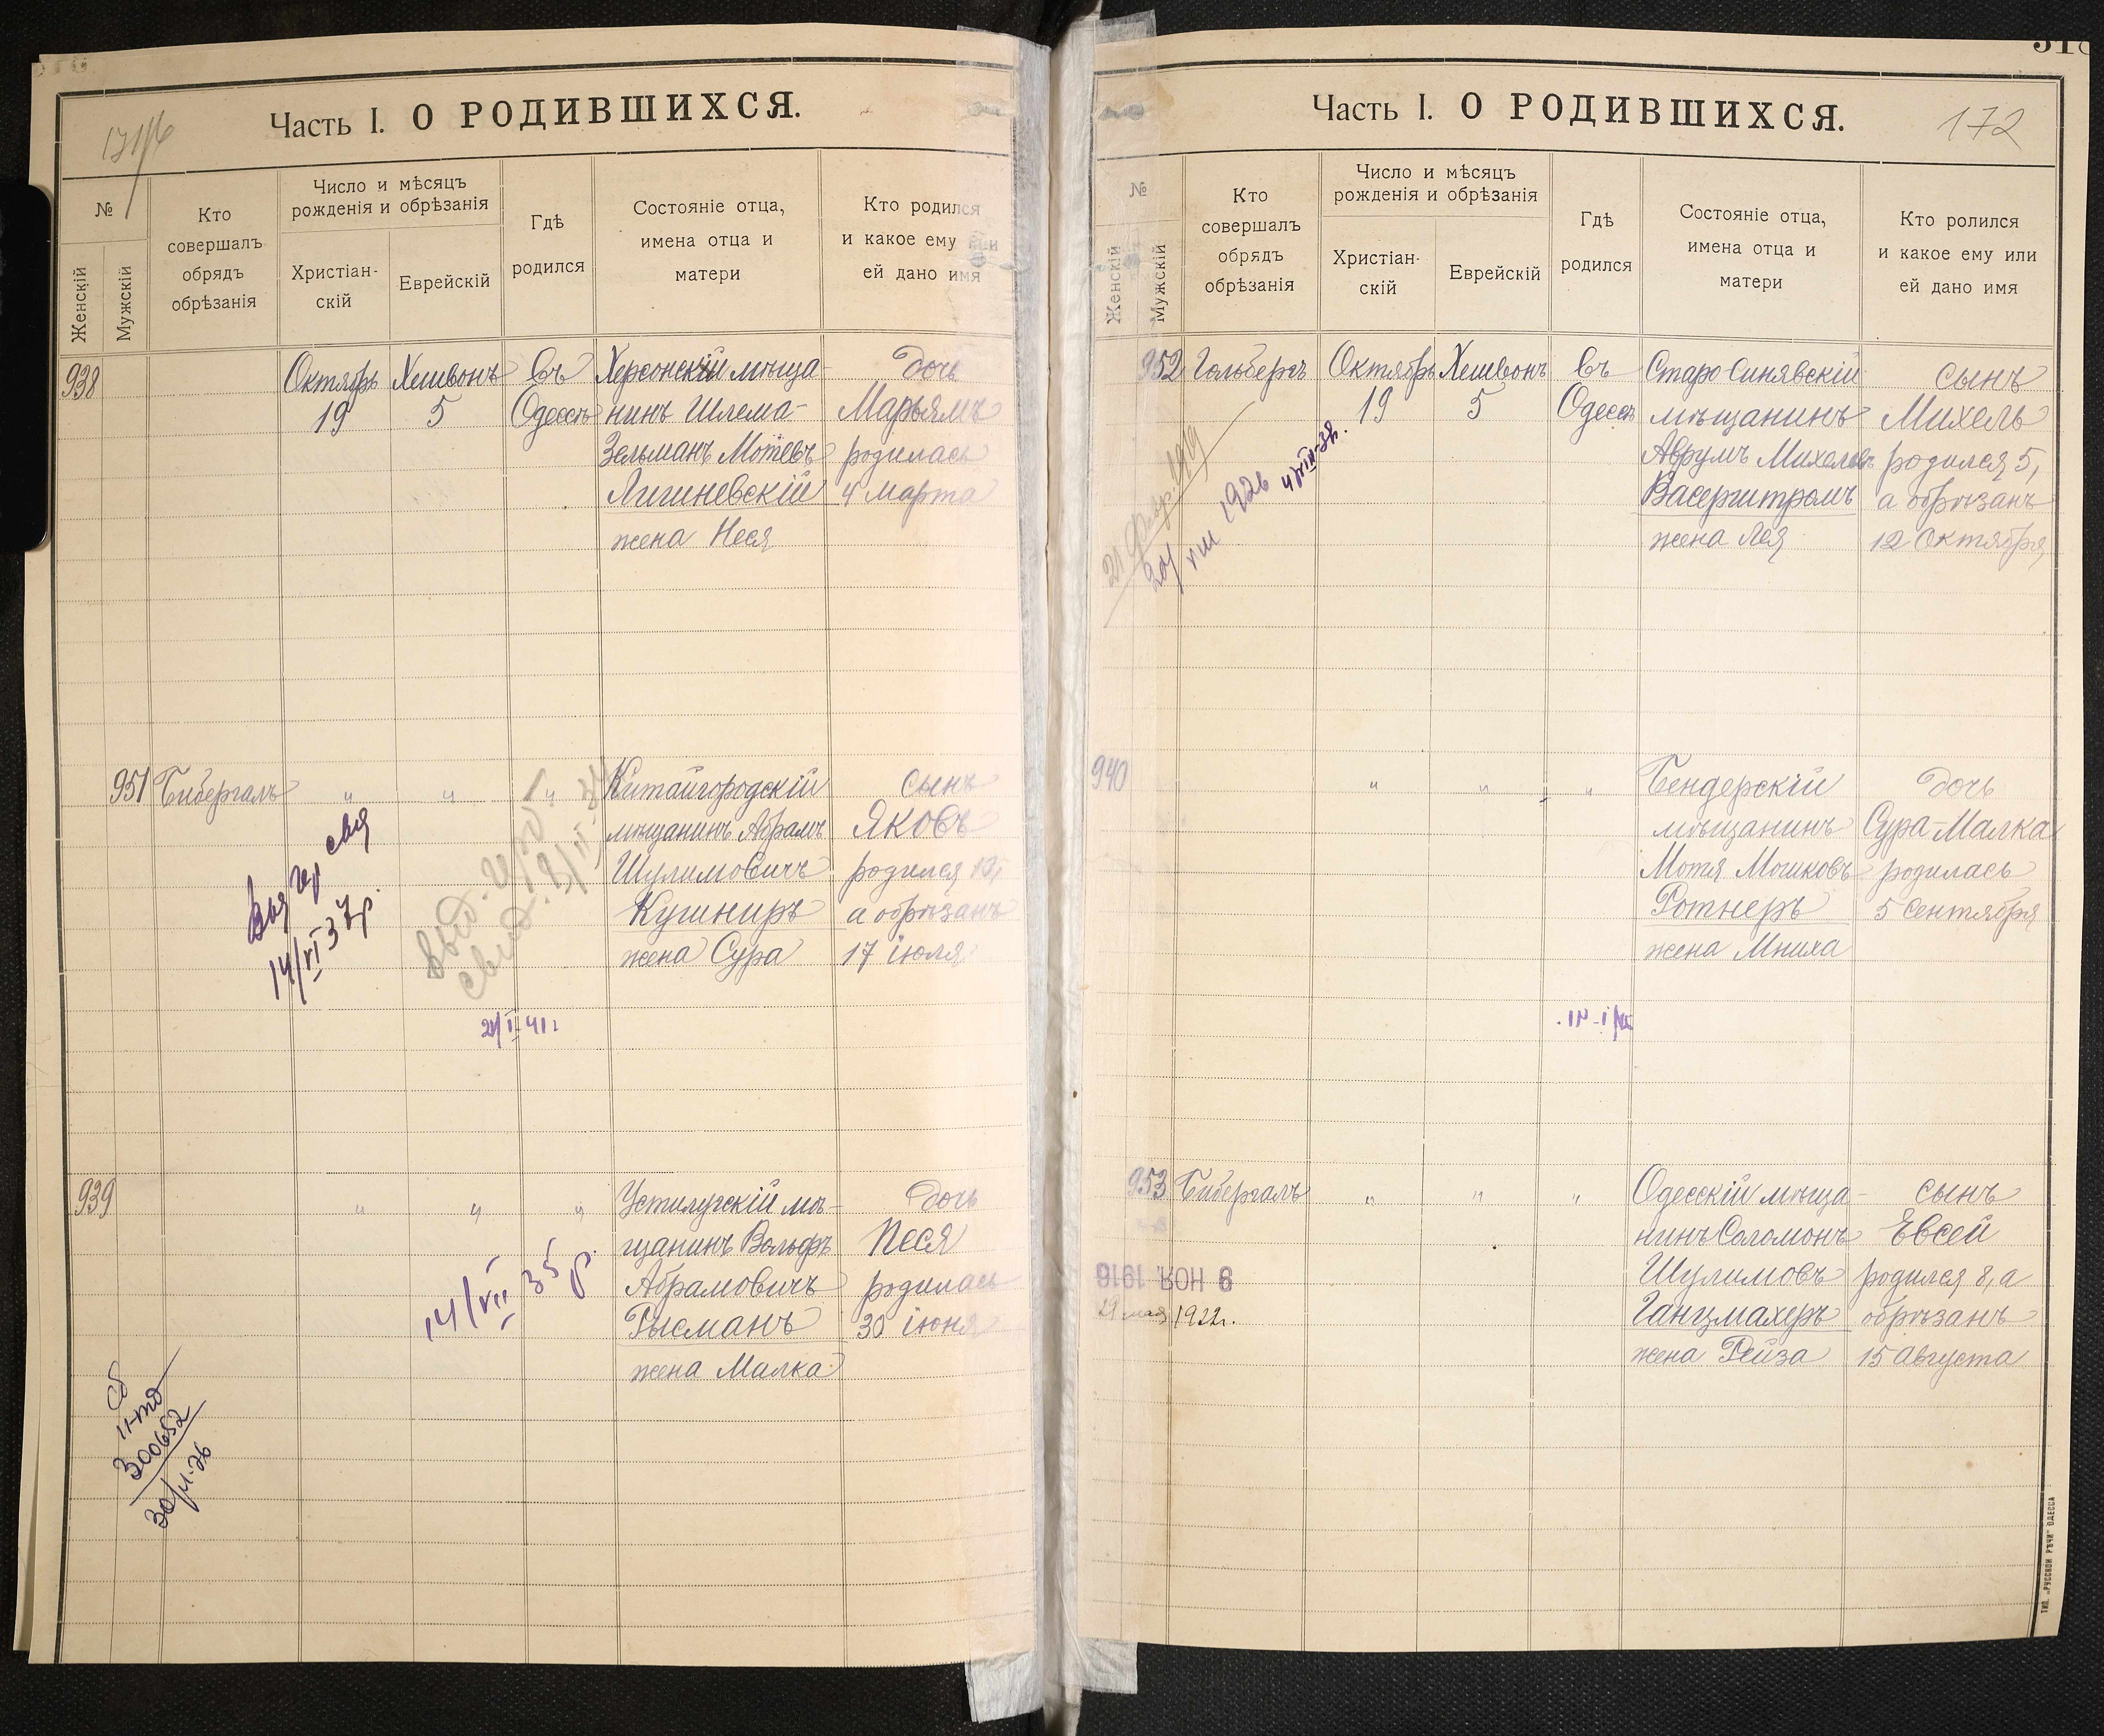 Часть I. О РОДИВШИХСЯ.
№
Женскій
Мужскій
Кто
совершалъ
обрядъ
обрѣзанія
Число и мѣсяцъ
рожденія и обрѣзанія
Христіан-
скій
Еврейскій
Гдѣ
родился
Состояніе отца,
имена отца и
матери
Кто родился
и какое ему или
ей дано имя
938
Октябрь
19
Хешвонъ
5
Въ
Одессѣ
Херсонскій мѣща-
нинъ Шлема-
Зельманъ Мотевъ
Лигиневскій
жена Неся
дочь
Марьямъ
родилась
4 марта
951
Бибергалъ
"
"
"
Китайгородскій
мѣщанинъ Абрамъ
Шулимовичъ
Кушниръ
жена Сура
сынъ
Яковъ
родился 10,
а обрѣзанъ
17 іюля
14/VI 37р.
21/I-41г
939
"
"
"
Устилугскій мѣ-
щанинъ Вольфъ
Абрамовичъ
Рысманъ
жена Малка
дочь
Песя
родилась
30 іюня
14/VII 35 р.
300652
Часть I. О РОДИВШИХСЯ.
172
№
Женскій
Мужскій
Кто
совершалъ
обрядъ
обрѣзанія
Число и мѣсяцъ
рожденія и обрѣзанія
Христіан-
скій
Еврейскій
Гдѣ
родился
Состояніе отца,
имена отца и
матери
Кто ролился
и какое ему или
ей дано имя
952
Гольбергъ
Октябрь
19
Хешвонъ
5
Въ
Одессѣ
Старо Синявскій
мѣщанинъ
Аврумъ Михелевъ
Васерштромъ
жена Лея
сынъ
Михель
родился 5,
а обрѣзанъ
12 Октября
20/VIII 1926
4/VIII-38.
940
"
"
"
Бендерскій
мѣщанинъ
Мотя Мошковъ
Ротнеръ
жена Мниха
дочь
Сура-Малка
родилась
5 Сентября
953
Бибергалъ
"
"
"
Одесскій мѣща-
нинъ Соломонъ
Шулимовъ
Ганцмахеръ
жена Рейза
сынъ
Евсей
родился 8, а
обрѣзанъ
15 Августа
9 НОЯ. 1916
29 мая 1922г.
ТИП. „РУССКОЙ РѢЧИ" ОДЕССА